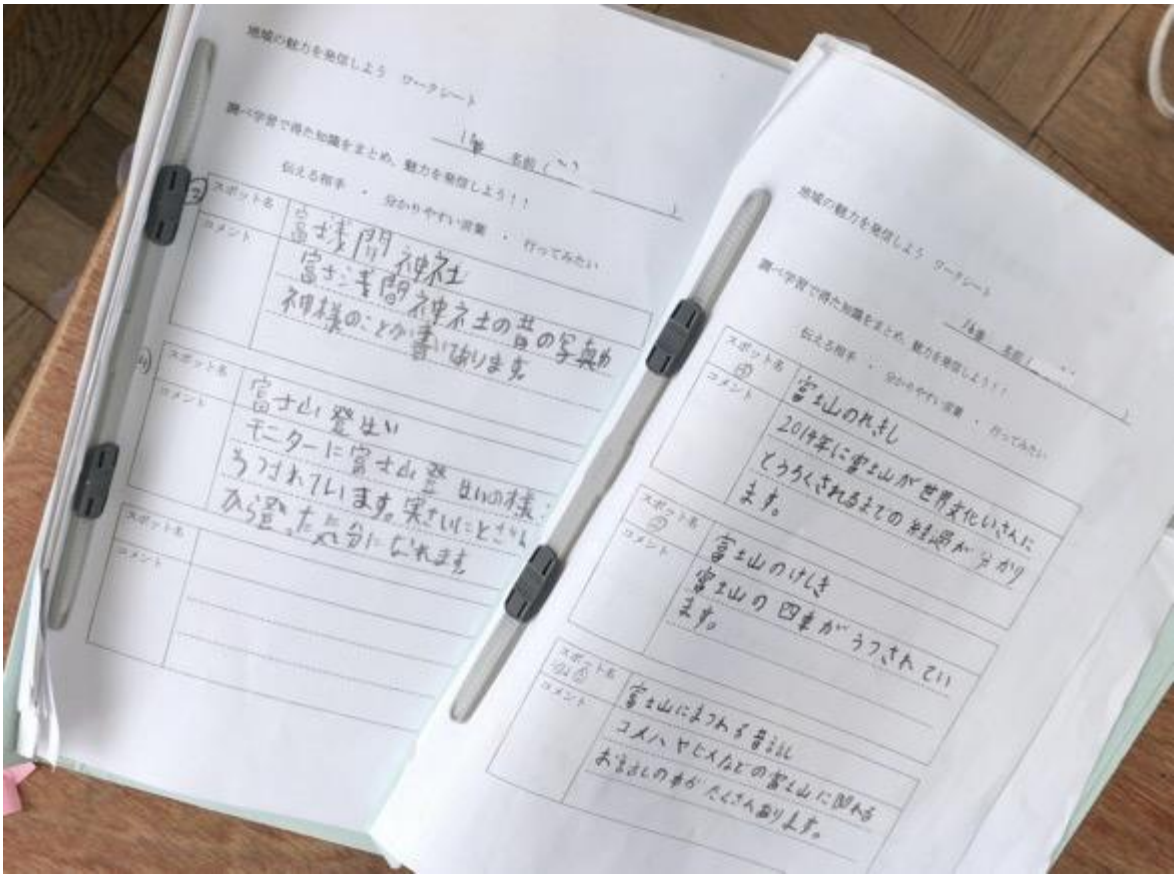 地域の魅力を発信しよう ワークシート
名前
調べ学習で得た知識をまとめ、魅力を発信しよう！！
伝える相手 ・ 分かりやすい言葉 ・ 行ってみたい
スポット名
富士浅間神社
コメント
富士浅間神社の昔の写真や
神様のことが書いてあります。
スポット名
富士山登山
コメント
モニターに富士山登山の様
うつされています。実さいに
から登った気分になれます。
スポット名
コメント
地域の魅力を発信しよう ワークシート
名前
調べ学習で得た知識をまとめ、魅力を発信しよう！！
伝える相手 ・ 分かりやすい言葉 ・ 行ってみたい
スポット名
富士山のれきし
コメント
2014年に富士山が世界文化いさんに
とうろくされるまでの経過が分かり
ます。
スポット名
富士山のけしき
コメント
富士山の四季がうつされてい
ます。
スポット名
富士山にまつわる昔話
コメント
などの富士山に関わる
の本がたくさんあります。